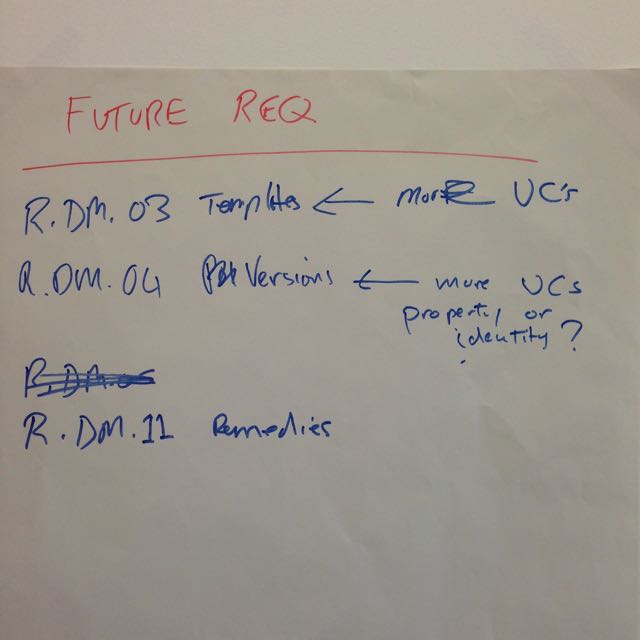 FUTURE REQ
R.DM.03 Templates ← more UC's
R.DM.04 Versions ← more UCs
property or
identity?
R.DM.11 Remedies